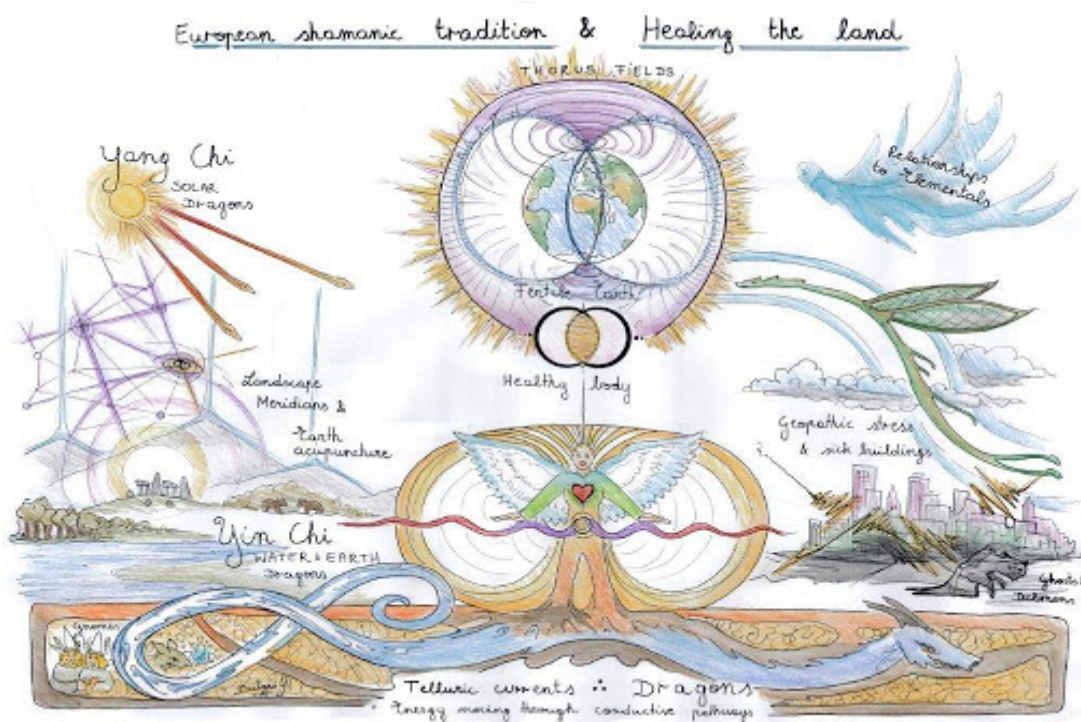 European shamanic tradition & Healing the land
THORUS FIELDS
Yang Chi
SOLAR
Dragons
Relationships
to Elementals
Fertile Earth
Healthy body
Landscape
Meridians &
Earth
acupuncture
Geopathic stress
& sick buildings
Yin Chi
WATER & EARTH
Dragons
Ghosts
gnomes
Telluric currents ∴ Dragons
Energy moving through conductive pathways